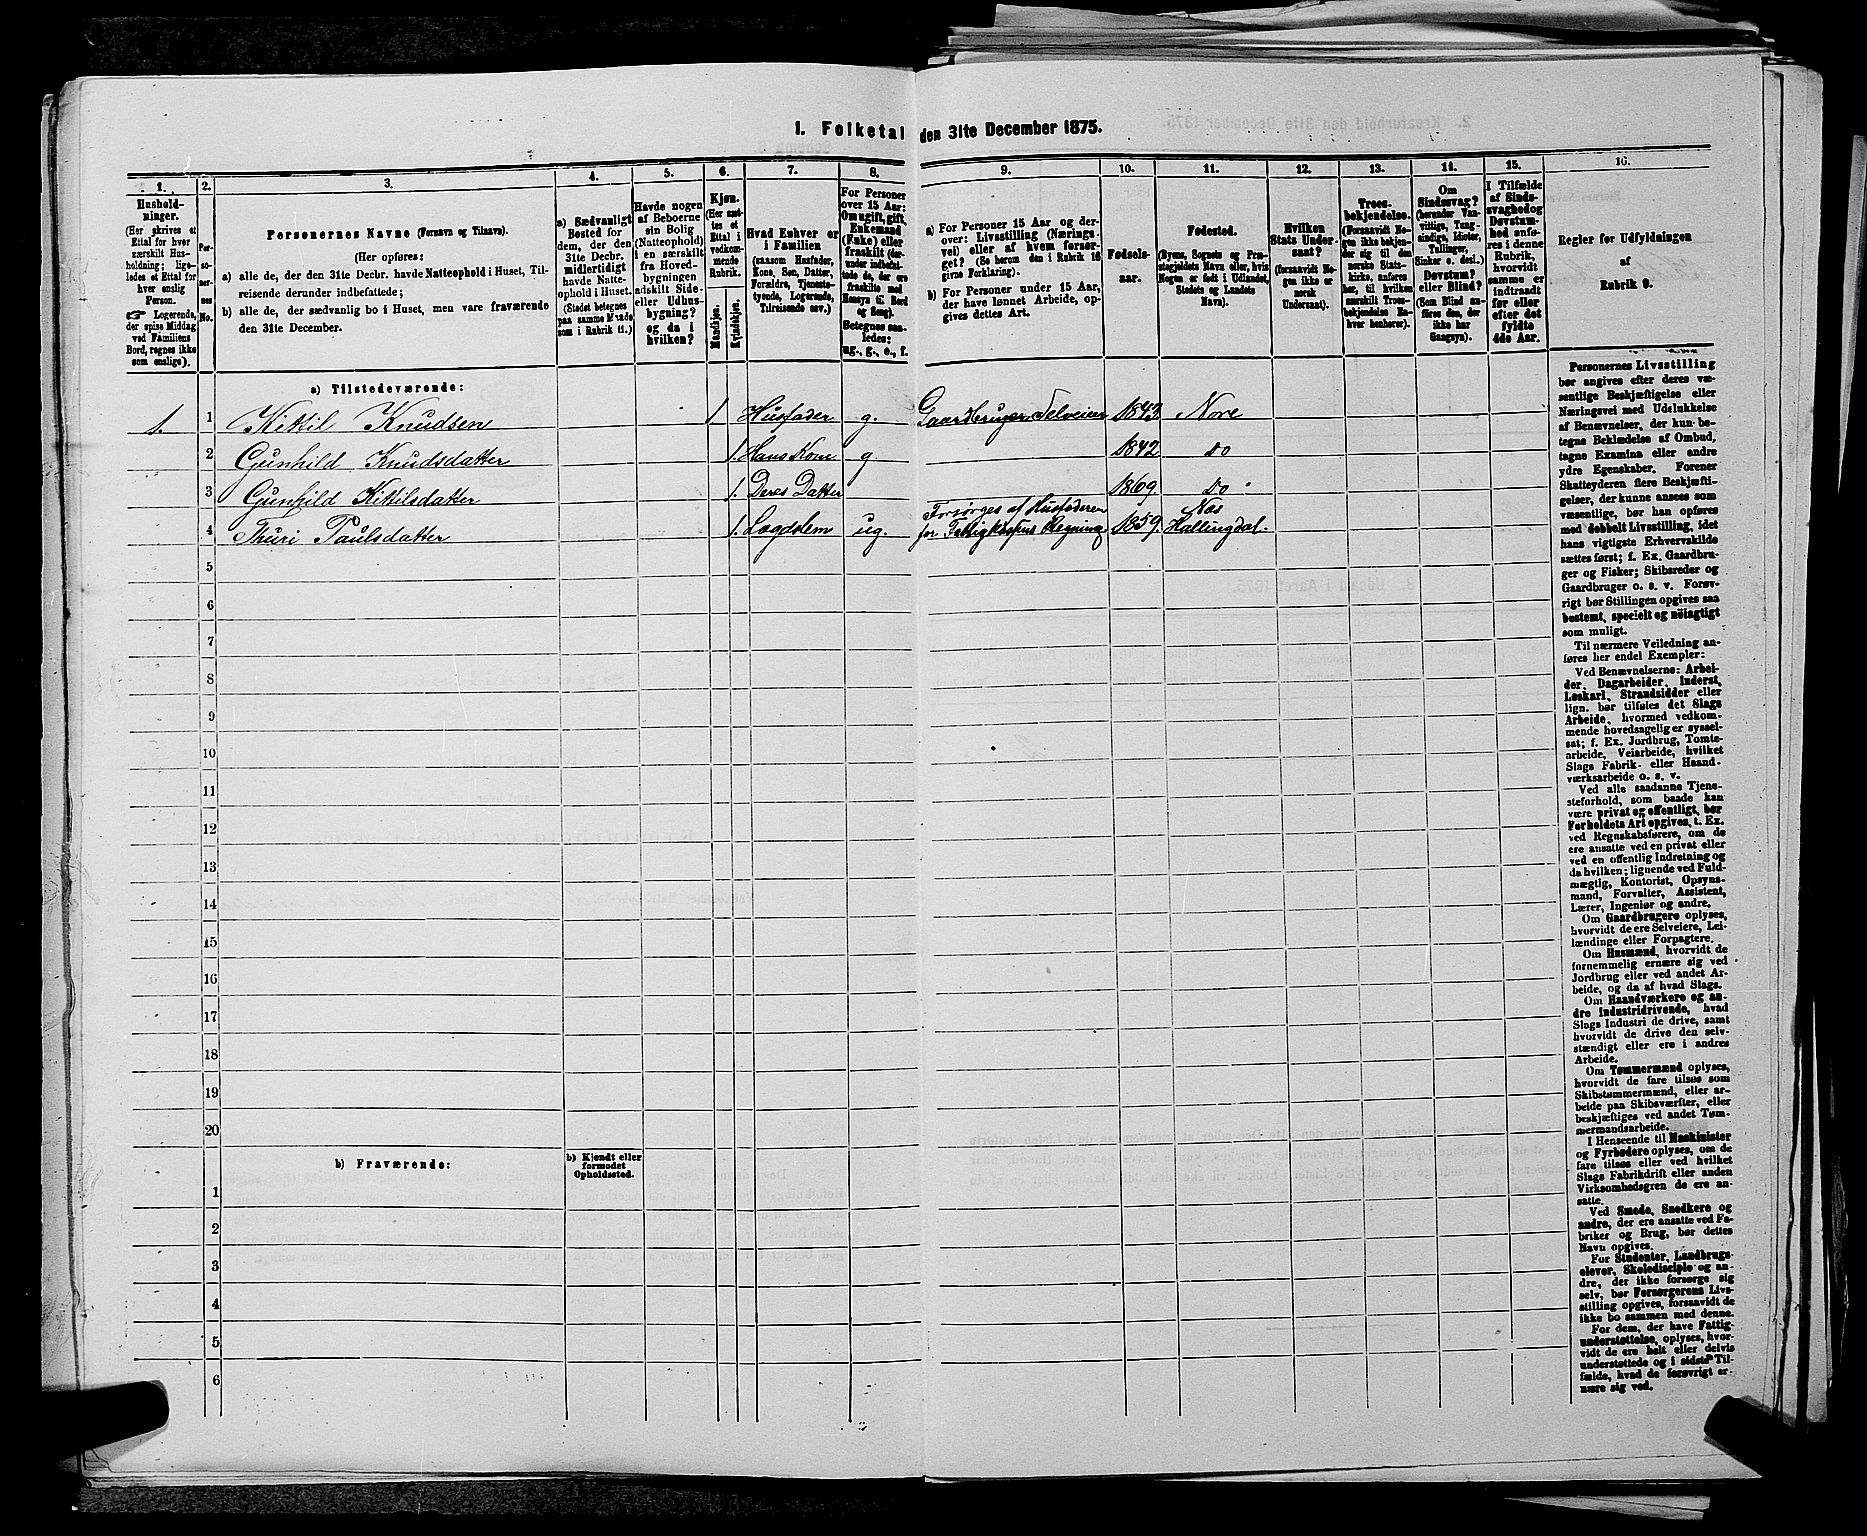 1. Folketal den 31te December 1875.
1.
Hushold-
ninger.
(Her skrives et
Ettal for hver
særskilt Hus-
holdning; lige-
ledes et Ettal for
hver enslig
Person.
☞ Logerende,
der spise Middag
ved Familiens
Bord, regnes ikke
som enslige).
2.
Per-
so-
ner-
nes
No.
3.
Personernes Navne (Fornavn og Tilnavn).
(Her opføres:
a) alle de, der den 31te Decbr. havde Natteophold i Huset, Til-
reisende derunder indbefattede;
b) alle de, der sædvanlig bo i Huset, men vare fraværende
den 31te December.
4.
a) Sædvanligt
Bosted for
dem, der den
31te Decbr.
midlertidigt
havde Natte-
ophold i Huset.
(Stedet betegnes
paa samme Maade
som i Rubrik 11.)
5.
Havde nogen
af Beboerne
sin Bolig
(Natteophold)
i en særskilt
fra Hoved-
bygningen
adskilt Side-
eller Udhus-
bygning?
og da i
hvilken?
6.
Kjøn.
(Her sæt-
tes et
Ettal i
vedkom-
mende
Rubrik.
Mandkjøn.
Kvindekjøn.
7.
Hvad Enhver er
i Familien
(saasom Husfader,
Kone, Søn, Datter,
Forældre, Tjeneste-
tyende, Logerende,
Tilreisende osv.)
8.
For Personer
over 15 Aar:
Om ugift, gift,
Enkemand
(Enke) eller
fraskilt (der-
under indbefat-
tede de, der ere
fraskilte med
Hensyn til Bord
og Seng).
Betegnes saa-
ledes:
ug., g., e., f.
9.
a) For Personer 15 Aar og der-
over: Livsstilling (Nærings-
vei) eller af hvem forsør-
get? (Se herom den i Rubrik 16
givne Forklaring).
b) For Personer under 15 Aar,
der have lønnet Arbeide, op-
gives dettes Art.
10.
Fødsels-
aar.
11.
Fødested.
(Byens, Sognets og Præ-
stegjeldets Navn eller, hvis
Nogen er født i Udlandet,
Stedets og Landets
Navn).
12.
Hvilken
Stats Under-
saat?
(forsaavidt No-
gen ikke er
norsk
Undersaat).
13.
Troes-
bekjendelse.
(Forsaavidt No-
gen ikke bekjen-
der sig til den
norske Stats-
kirke, anføres
her, til hvilken
særskilt Troes-
bekjendelse En-
hver henhører).
14.
Om
Sindssvag?
(herunder Van-
vittige, Tung-
sindige, Idioter,
Tullinger,
Sinker o. desl.)
Døvstum?
eller Blind?
(Som Blind an-
føres den, der
ikke har
Gangsyn).
15.
I Tilfælde
af Sinds-
svaghed og
Døvstum-
hed anfø-
res i denne
Rubrik,
hvorvidt
samme er
indtraadt
før eller
efter det
fyldte
4de Aar.
16.
Regler for Udfyldningen
af
Rubrik 9.
a) Tilstedeværende:
1. 1 Kittil Knudsen 1 Husfader g. Gaardbruger Selveier 1843 Nore
2 Gunhild Knudsdatter 1. Hans Kone g 1842 do
3 Gunhild Kittilsdatter 1. Deres Datter 1869. do
4 Thuri Paulsdatter 1. Lægdslem ug. Forsørges af Husfaderen
for Fattigkassens Regning 1859. Næs
Hallingdal.
5
6
7
8
9
10
11
12
13
14
15
16
17
18
19
20
b) Fraværende:
b) Kjendt eller
formodet
Opholdssted.
1
2
3
4
5
6
Personernes Livsstilling
bør angives efter deres væ-
sentlige Beskjæftigelse eller
Næringsvei med Udelukkelse
af Benævnelser, der kun be-
tegne Beklædelse af Ombud,
tagne Examina eller andre
ydre Egenskaber. Forener
Skatteyderen flere Beskjæfti-
gelser, der kunne ansees som
væsentlige, bør han opføres
med dobbelt Livsstilling, idet
hans vigtigste Erhvervskilde
sættes først; f. Ex. Gaardbru-
ger og Fisker; Skibsreder og
Gaardbruger o. s. v. Forøv-
rigt bør Stillingen opgives saa
bestemt, specielt og nøiagtigt
som muligt.
Til nærmere Veiledning an-
føres her endel Exempler:
Ved Benævnelserne: Arbei-
der, Dagarbeider, Inderst,
Løskarl, Strandsidder eller
lign. bør tilføies det Slags
Arbeide, hvormed vedkom-
mende hovedsagelig er syssel-
sat; f. Ex. Jordbrug, Tomte-
arbeide, Veiarbeide, hvilket
Slags Fabrik- eller Haand-
værksarbeide o. s. v.
Ved alle saadanne Tjene-
steforhold, som baade kan
være privat og offentligt, bør
Forholdets Art opgives, t. Ex.
ved Regnskabsførere, om de
ere ansatte ved en privat eller
ved en offentlig Indretning og
da hvilken; lignende ved Fuld-
mægtig, Kontorist, Opsyns-
mand, Forvalter, Assistent,
Lærer, Ingeniør og andre.
Om Gaardbrugere oplyses,
hvorvidt de ere Selveiere, Lei-
lændinge eller Forpagtere.
Om Husmænd, hvorvidt de
fornemmelig ernære sig ved
Jordbrug eller ved andet Ar-
beide, og da af hvad Slags.
Om Haandværkere og an-
dre Industridrivende, hvad
Slags Industri de drive, samt
hvorvidt de drive den selv-
stændigt eller ere i andres
Arbeide.
Om Tømmermænd oplyses,
hvorvidt de fare tilsøs som
Skibstømmermænd, eller ar-
beide paa Skibsværfter, eller
beskjæftiges ved andet Tøm-
mermandsarbeide.
I Henseende til Maskinister
og Fyrbødere oplyses, om de
fare tilsøs eller ved hvilket
Slags Fabrikdrift eller anden
Virksomhedsgren de ere an-
satte.
Ved Smede, Snedkere og
andre, der ere ansatte ved Fa-
briker og Brug, bør dettes
Navn opgives.
For Studenter, Landbrugs-
elever, Skoledisciple og an-
dre, der ikke forsørge sig
selv, bør Forsørgerens Livs-
stilling opgives, forsaavidt de
ikke bo sammen med denne.
For dem, der have Fattig-
understøttelse, oplyses, hvor-
vidt de ere helt eller delvis
understøttede og i sidste Til-
fælde, hvad de forøvrigt er-
nære sig ved.